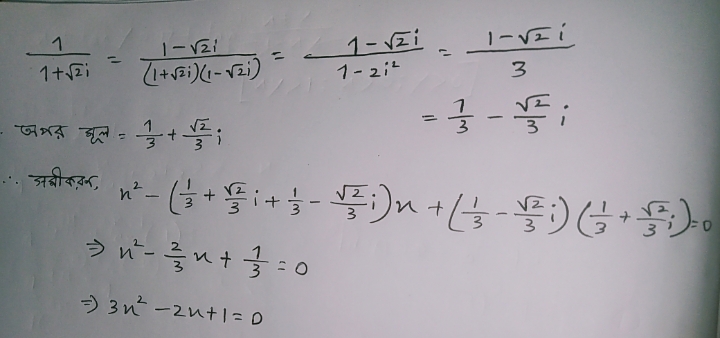 1/(1+√2i) = (1-√2i)/((1+√2i)(1-√2i)) = (1-√2i)/(1-2i²) = (1-√2i)/3
= 1/3 - √2/3 i
∴ অপর মূল = 1/3 + √2/3 i
∴ সমীকরণ, x² - (1/3 + √2/3 i + 1/3 - √2/3 i)x + (1/3 - √2/3 i)(1/3 + √2/3 i) = 0
⇒ x² - 2/3 x + 1/3 = 0
⇒ 3x² - 2x + 1 = 0